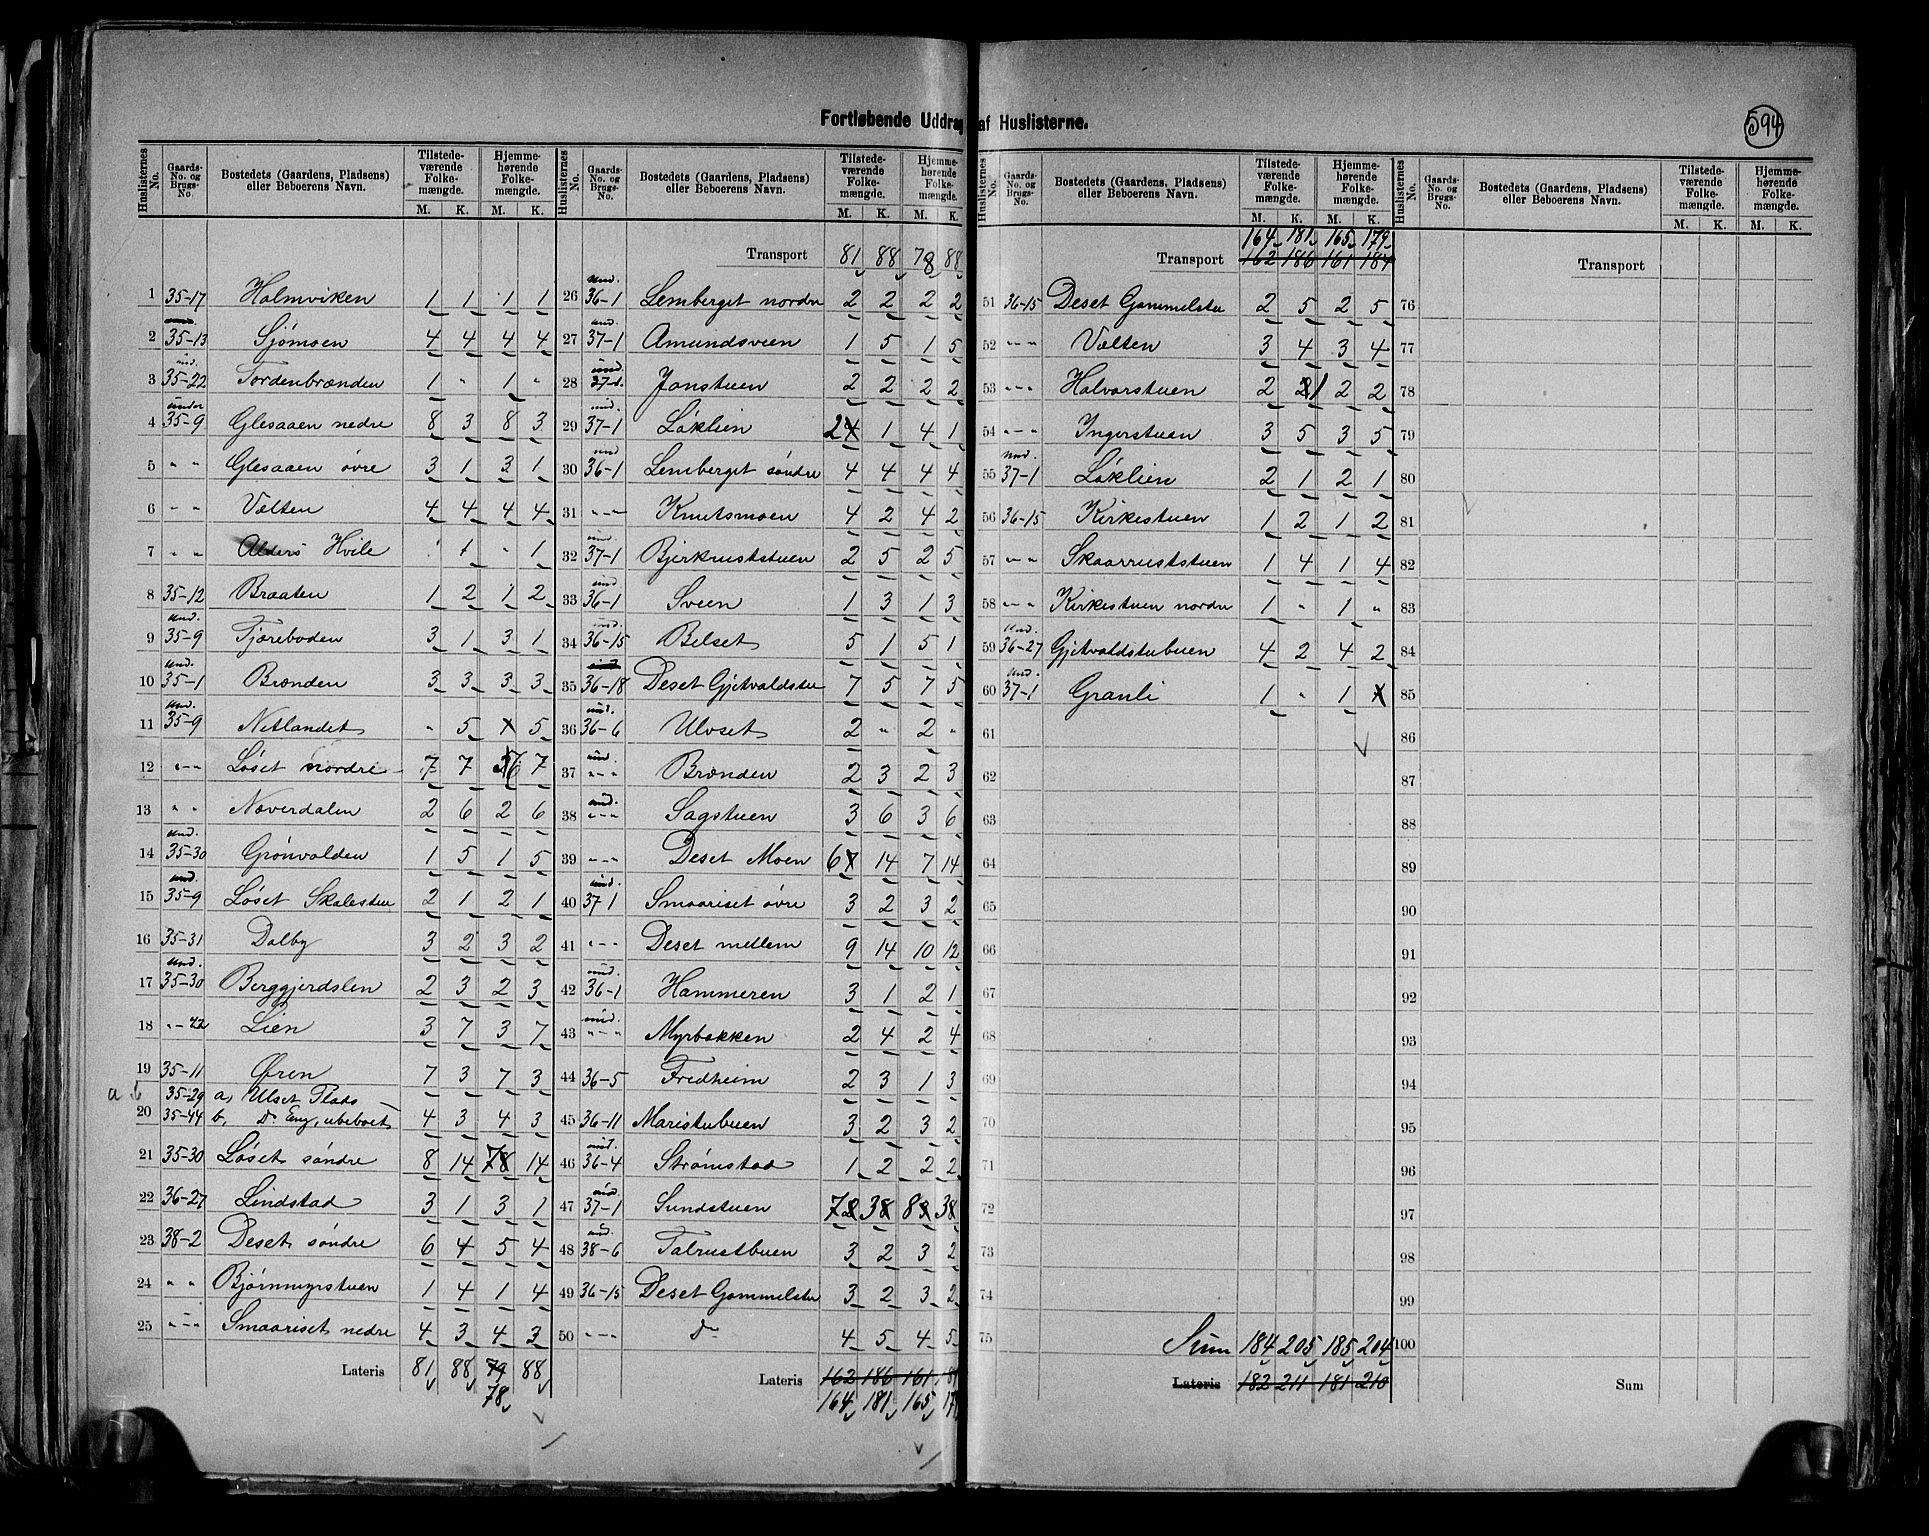 594
Fortløbende Uddrag af Huslisterne.
Huslisternes No. Gaards-No. og Brugs-No. Bostedets (Gaardens, Pladsens) eller Beboerens Navn. Tilstedeværende Folkemængde. M. K. Hjemmehørende Folkemængde. M. K.
1 35-17 Holmviken 1 1 1 1
2 35-13 Sjømoen 4 4 4 4
3 und. 35-22 Tordenbrænden 1 " 1 "
4 under 35-9 Glesaaen nedre 8 3 8 3
5 " " Glesaaen øvre 3 1 3 1
6 " " Vælten 4 4 4 4
7 " " Alders Hvile " 1 " 1
8 35-12 Braaten 1 2 1 2
9 und. 35-9 Tjæreboden 3 1 3 1
10 und. 35-1 Brænden 3 3 3 3
11 und. 35-9 Netlandet " 5 x 5
12 "-" Løset nordre 7 7 6 7
13 " " Næverdalen 2 6 2 6
14 und. 35-30 Grønvolden 1 5 1 5
15 und. 35-9 Løset Skalestue 2 1 2 1
16 35-31 Dalby 3 2 3 2
17 und. 35-30 Berggjerdslien 2 3 2 3
18 "-42 Lien 3 7 3 7
19 35-11 Øren 7 3 7 3
a b 35-29 a, Ulset Plads
20 35-44 b, Do Eng, ubeboet 4 3 4 3
21 35-30 Løset søndre 8 14 78 14
22 36-27 Lindstad 3 1 3 1
23 38-2 Deset søndre 6 4 5 4
24 " " Bjørnmyrstuen 1 4 1 4
25 "-" Smaariset nedre 4 3 4 3
Lateris 81 88 79 88
78
Transport 81 88 78 88
26 und. 36-1 Lemberget nordre 2 2 2 2
27 und. 37-1 Amundsveen 1 5 1 5
28 und. 37-1 Jonstuen 2 2 2 2
29 und. 37-1 Løklien 24 1 4 1
30 und 36-1 Lemberget søndre 4 4 4 4
31 "-" Knutsmoen 4 2 4 2
32 und. 37-1 Bjerkruststuen 2 5 2 5
33 und. 36-1 Sveen 1 3 1 3
34 und. 36-15 Belset 5 1 5 1
35 und 36-18 Deset Gjetvoldstu 7 5 7 5
36 und. 36-6 Ulvset 2 " 2 "
37 und "-" Brænden 2 3 2 3
38 und. "-" Sagstuen 3 6 3 6
39 "-" Deset Moen 67 14 7 14
40 und. 37-1 Smaariset øvre 3 2 3 2
41 "-" Deset mellem 9 14 10 12
42 und. 36-1 Hammeren 3 1 2 1
43 und. "-" Myrbakken 2 4 2 4
44 36-5 Fredheim 2 3 1 3
45 36-11 Maristubuen 3 2 3 2
46 und. 36-4 Strømstad 1 2 2 2
47 und. 37-1 Sundstuen 78 38 8 38
48 und. 38-6 Talrustbuen 3 2 3 2
49 36-15 Deset Gammelstu 3 2 3 2
50 "-" Do 4 5 4 5
Lateris 162 186 161 181
164 181 165 17
164 181 165 179
Transport 162 186 161 184
51 36-15 Deset Gammelstu 2 5 2 5
52 "-" Vælten 3 4 3 4
53 "-" Halvorstuen 2 21 2 2
54 "-" Ingerstuen 3 5 3 5
55 und. 37-1 Løklien 2 1 2 1
56 36-15 Kirkestuen 1 2 1 2
57 "-" Skaarruststuen 1 4 1 4
58 "-" Kirkestuen nordre 1 " 1 "
59 und. 36-27 Gjetvoldstubuen 4 2 4 2
60 und. 37-1 Granli 1 " 1 x
61
62
63
64
65
66
67
68
69
70
71
72
73
74
75 Sum 184 205 185 204
Lateris 182 211 181 210
Transport
76
77
78
79
80
81
82
83
84
85
86
87
88
89
90
91
92
93
94
95
96
97
98
99
100
Sum